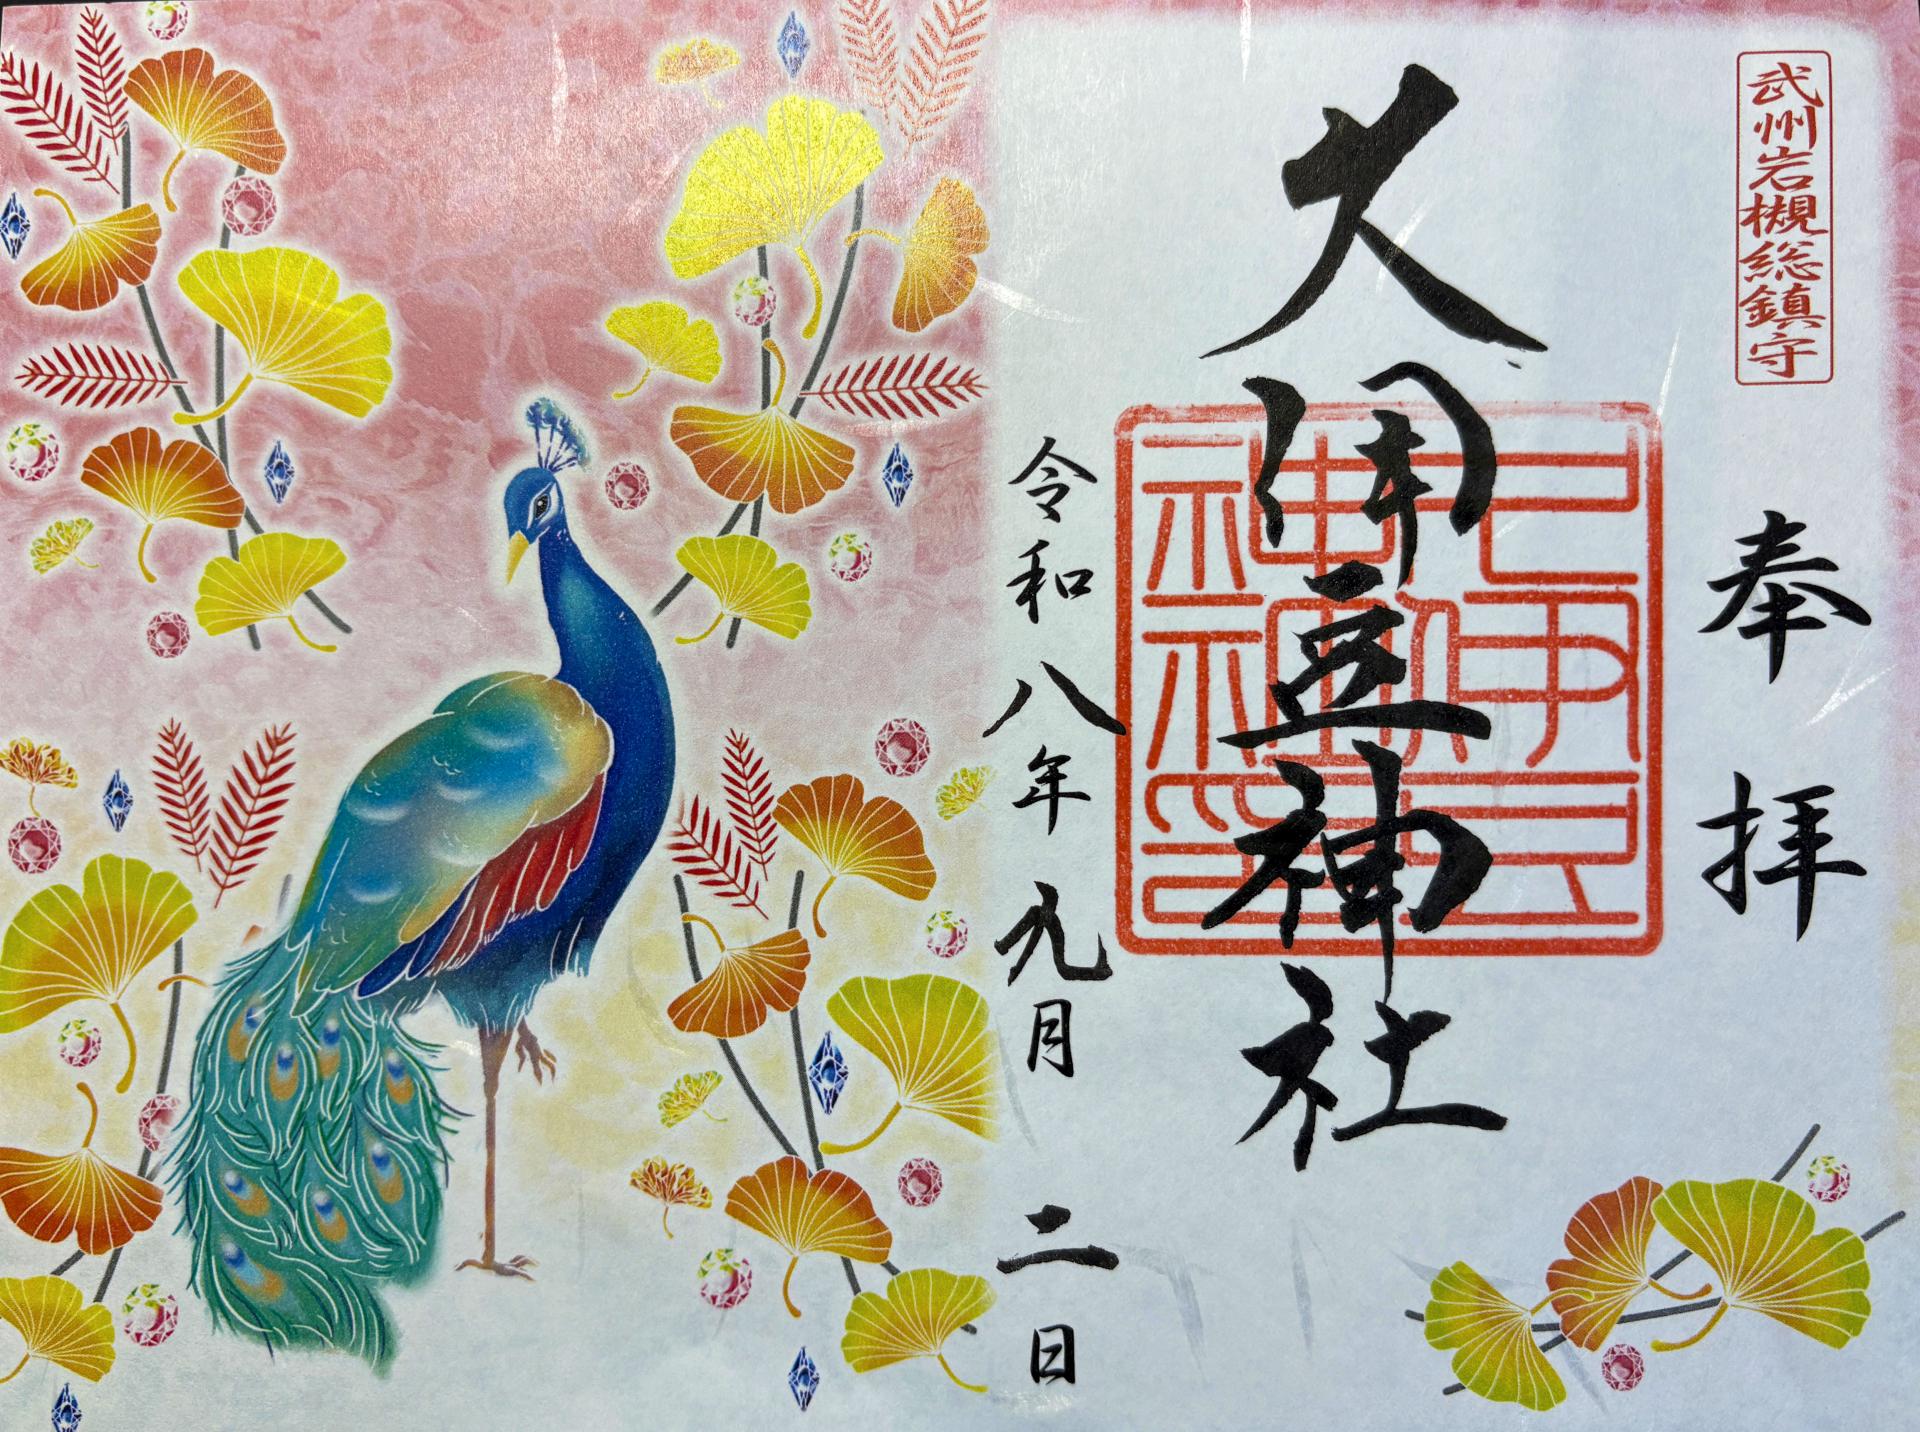 武州岩槻総鎮守
奉拝
久伊豆神社
久伊豆
神社印
令和八年九月二日